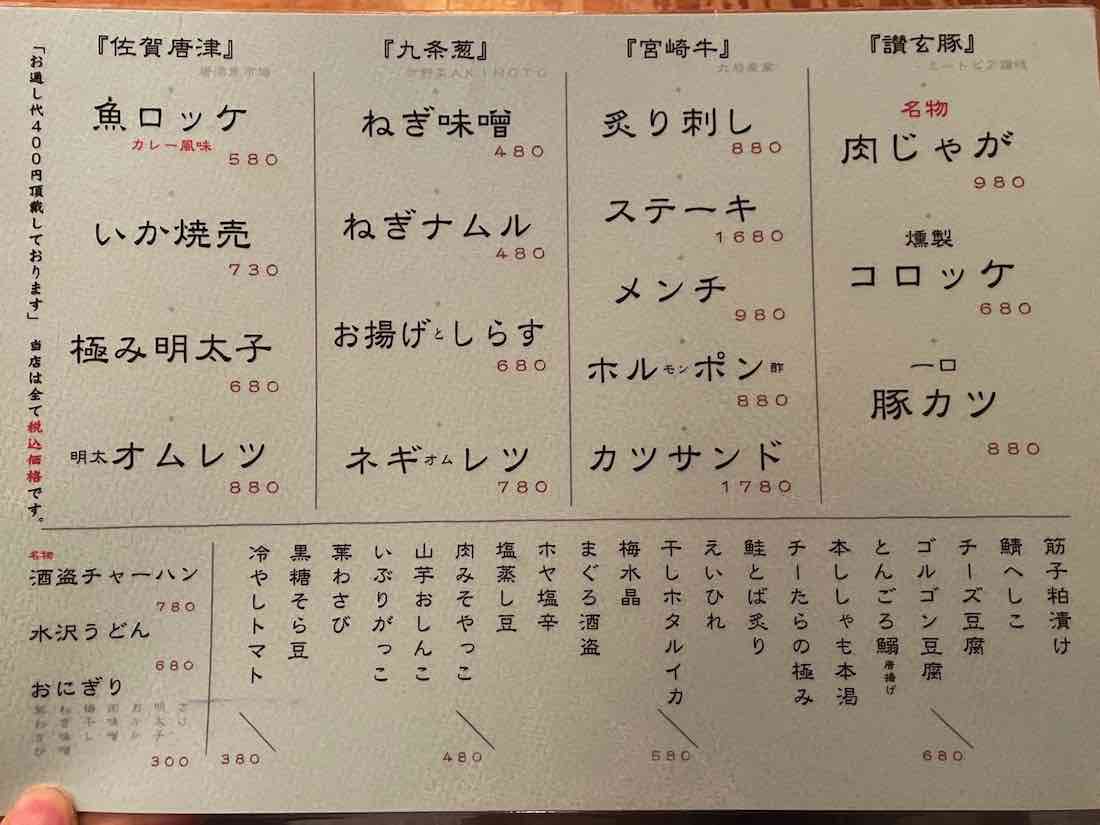 「お通し代４００円頂戴しております」 当店は全て税込価格です。
『佐賀唐津』
唐津魚市場
魚ロッケ
カレー風味
580
いか焼売
730
極み明太子
680
明太オムレツ
880
『九条葱』
AKIMOTO
ねぎ味噌
480
ねぎナムル
480
お揚げとしらす
680
ネギオムレツ
780
『宮崎牛』
炙り刺し
880
ステーキ
1680
メンチ
980
ホルモンポン酢
880
カツサンド
1780
『讃玄豚』
名物
肉じゃが
980
燻製
コロッケ
680
一口
豚カツ
880
筋子粕漬け
鯖へしこ
チーズ豆腐
ゴルゴン豆腐
とんごろ鰯唐揚げ
本ししゃも本潟
680
チーたらの極み
鮭とば炙り
えいひれ
干しホタルイカ
梅水晶
まぐろ酒盗
580
ホヤ塩辛
塩蒸し豆
肉みそやっこ
山芋おしんこ
いぶりがっこ
葉わさび
480
黒糖そら豆
冷やしトマト
380
名物
酒盗チャーハン
780
水沢うどん
680
おにぎり
さけ
明太子
おかか
肉味噌
梅干し
ねぎ味噌
葉わさび
300